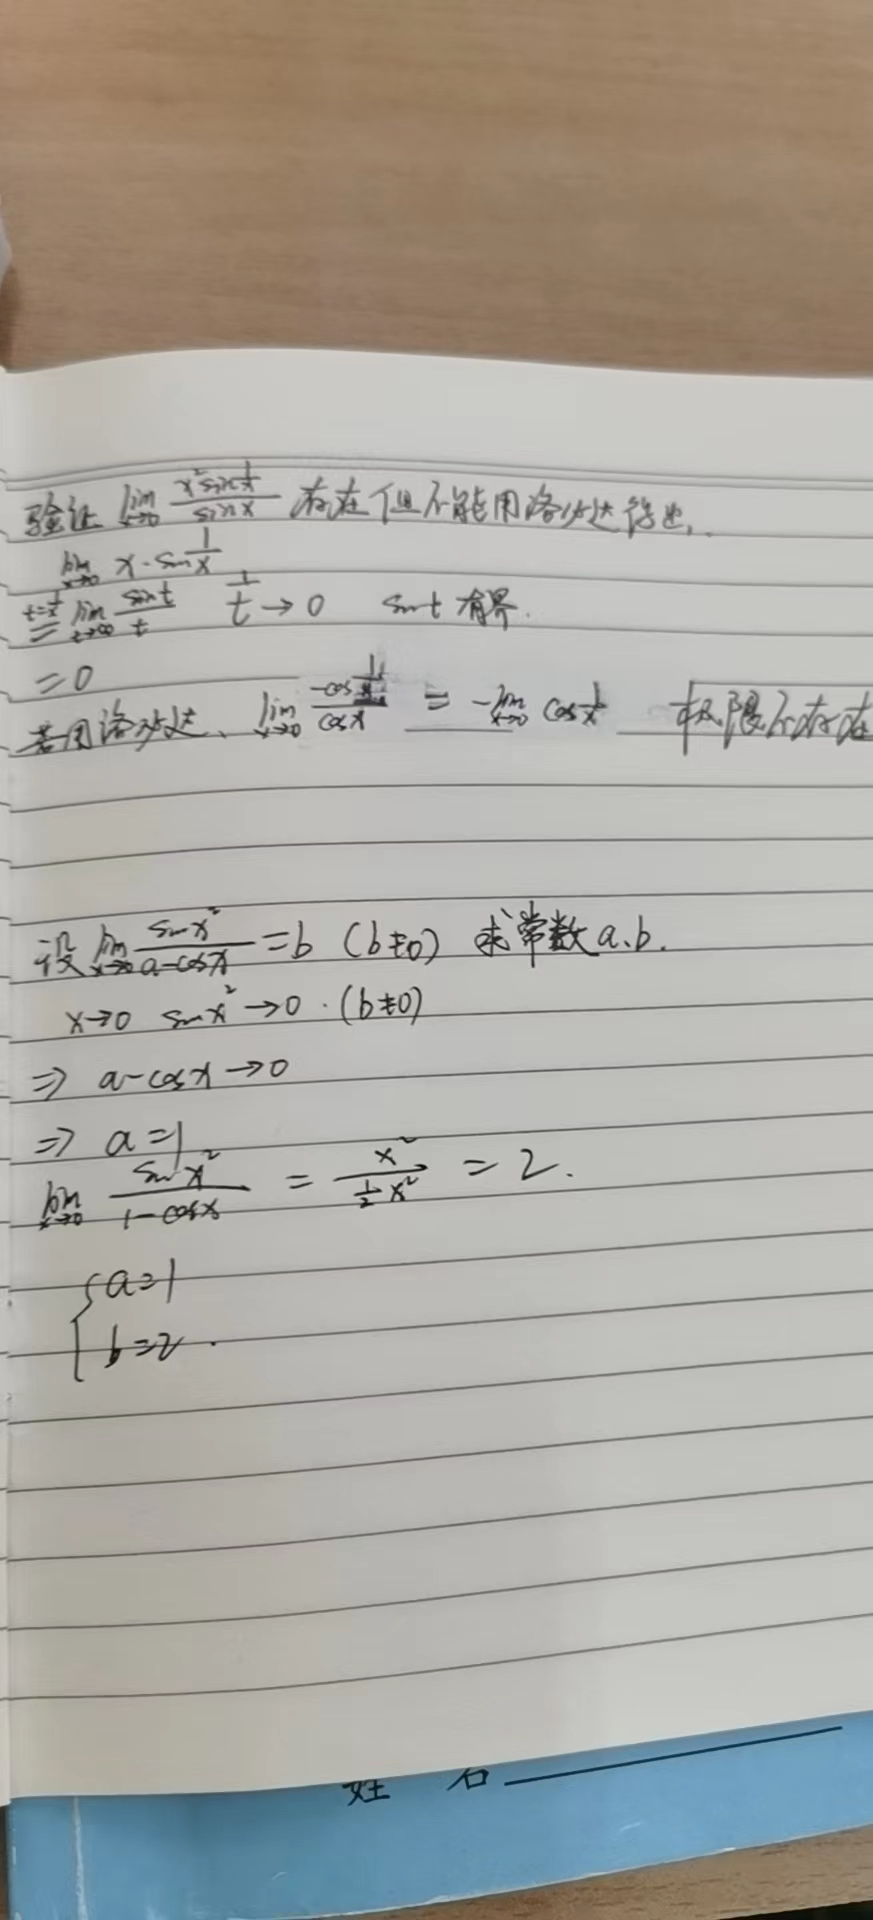 验证 lim x→0 x²sin 1/x / sin x 存在但不能用洛必达得出.
lim x→0 x·sin 1/x
t=1/x = lim t→∞ sin t / t 1/t → 0 sin t 有界.
= 0
若用洛必达、lim x→0 -cos 1/x / cos x = -lim x→0 cos 1/x 极限不存在
设 lim x→0 sin x² / a-cos x = b (b≠0) 求常数 a、b.
x→0 sin x² → 0 . (b≠0)
⇒ a-cos x → 0
⇒ a=1
lim x→0 sin x² / 1-cos x = x² / ½x² = 2.
{ a=1
b=2 .
姓 名